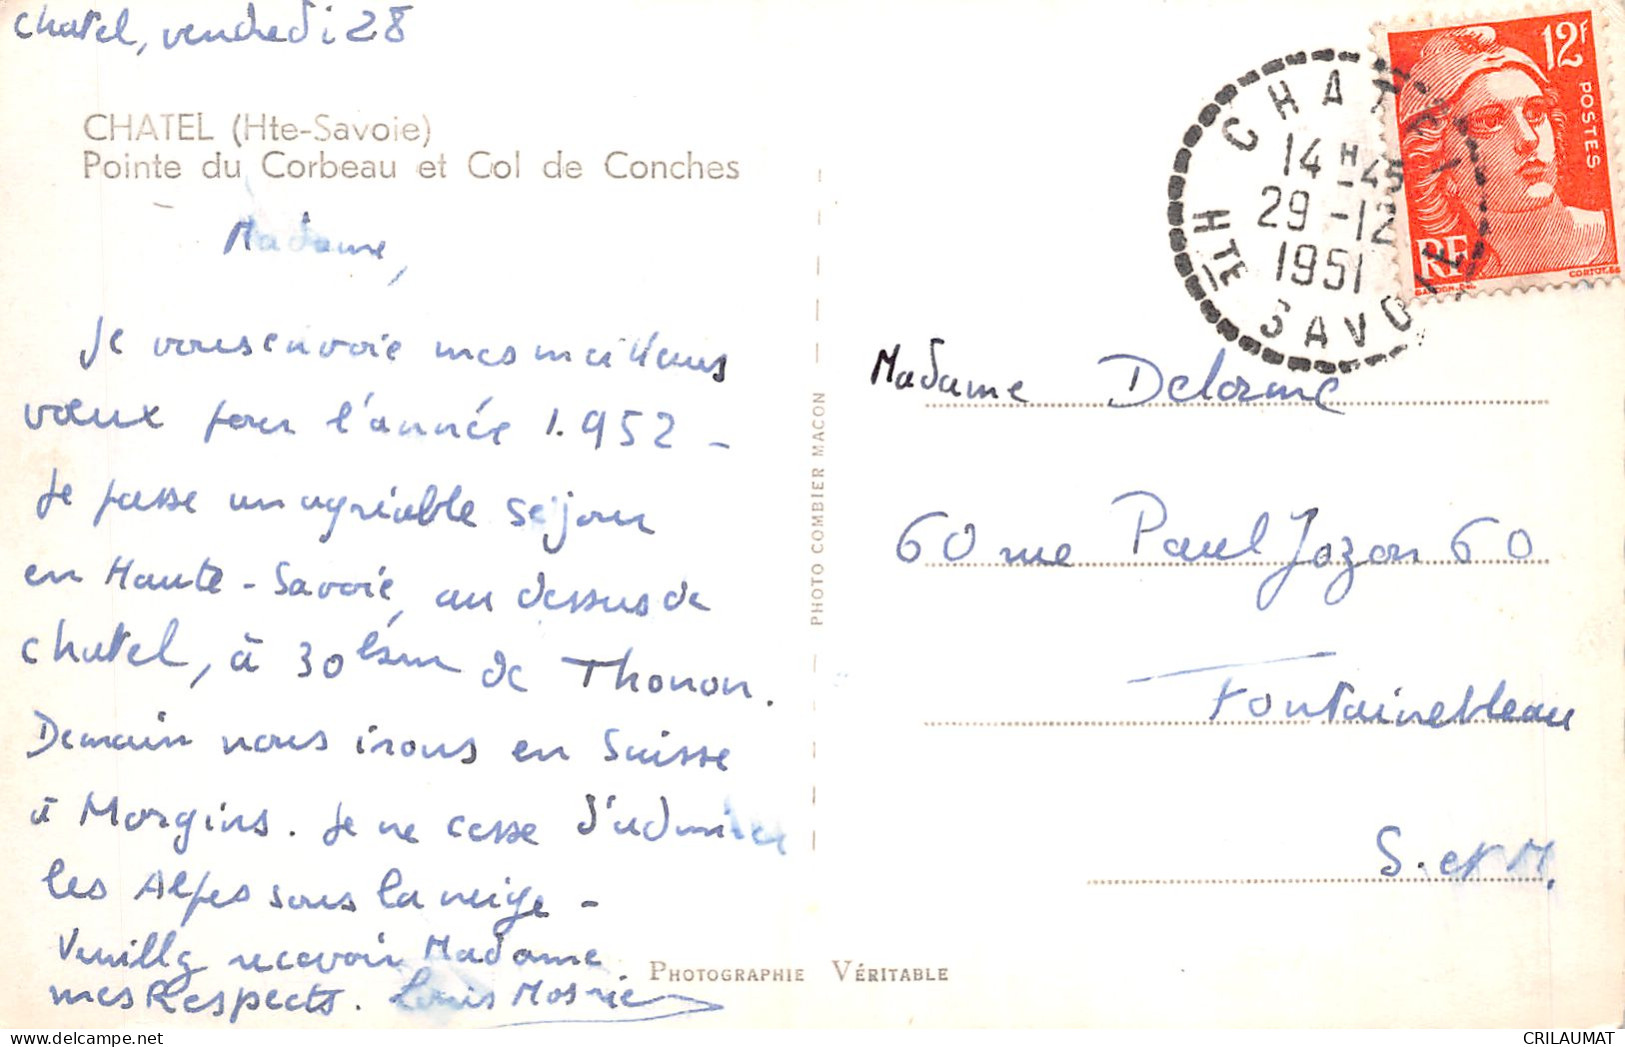 Chatel, vendredi 28
CHATEL (Hte-Savoie)
Pointe du Corbeau et Col de Conches
Madame,
Je vous envoie mes meilleurs
vœux pour l'année 1.952 -
Je passe un agréable séjour
en Haute-Savoie, au dessus de
Chatel, à 30 km de Thonon.
Demain nous irons en Suisse
à Morgins. Je ne cesse d'admirer
les Alpes sous la neige -
Veuillez recevoir Madame
mes Respects. Louis
PHOTO COMBIER MACON
PHOTOGRAPHIE VÉRITABLE
CHATEL
14 H -45
29 -12
1951
HTE SAVOIE
12F
POSTES
RF
Madame Delorme
60 rue Paul Jozon 60
Fontainebleau
S. et M.
CRILAUMAT